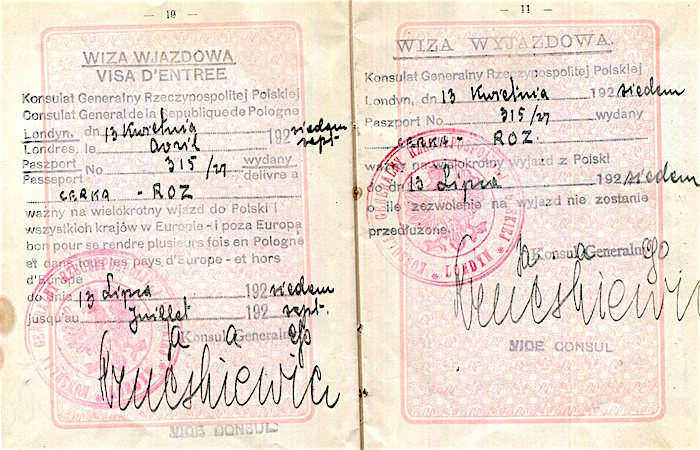 — 10 —
WIZA WJAZDOWA
VISA D'ENTREE
Konsulat Generalny Rzeczypospolitej Polskiej
Consulat General de la Republique de Pologne
Londyn, dn. 13 Kwietnia 192 siedem
Londres, le Avril sept.
Paszport No 315/27 wydany
Passeport delivre a
CERKA - ROZ
wazny na wielokrotny wjazd do Polski i
wszystkich krajow w Europie - i poza Europa
bon pour se rendre plusieurs fois en Pologne
et dans tous les pays d'Europe - et hors
d'Europe
do dnia 13 Lipca 192 siedem
jusqu'au Juillet 192 sept.
za
Konsul Generalny
VICE CONSUL
— 11 —
WIZA WYJAZDOWA.
Konsulat Generalny Rzeczypospolitej Polskiej
Londyn, dn. 13 Kwietnia 192 siedem
Paszport No 315/27 wydany
CERKA - ROZ.
wazny na wielokrotny wyjazd z Polski
do dn. 13 Lipca 192 siedem
o ile zezwolenie na wyjazd nie zostanie
przedluzone.
za
Konsul Generalny
VICE CONSUL
LONDYN